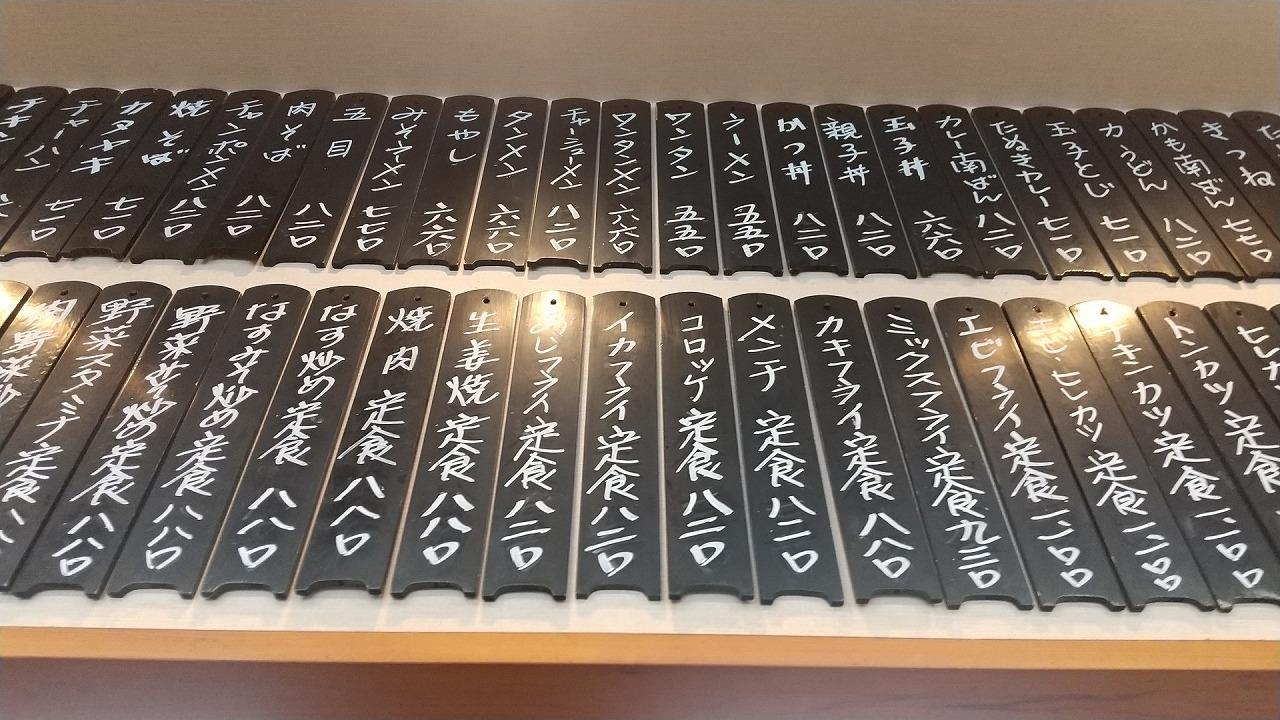 きつね
かも南ばん 七七〇
力うどん 八二〇
玉子とじ 七一〇
たぬきカレー 七一〇
カレー南ばん 八二〇
玉子丼 六六〇
親子丼 八二〇
かつ丼 八二〇
ラーメン 五五〇
ワンタン 五五〇
ワンタンメン 六六〇
チャーシューメン 八二〇
タンメン 六六〇
もやし 六六〇
みそラーメン 七七〇
五目 八二〇
肉そば 八二〇
チャンポンメン 八二〇
焼そば 七一〇
カタヤキ 七一〇
チャーハン
チキン
ヒレカ
トンカツ定食
チキンカツ定食
エビ・ヒレカツ定食
エビフライ定食
ミックスフライ定食 九三〇
カキフライ定食 八八〇
メンチ定食 八二〇
コロッケ定食 八二〇
イカフライ定食 八二〇
あじフライ定食 八二〇
生姜焼定食 八八〇
焼肉定食 八八〇
なす炒め定食 八八〇
なすみそ炒め定食 八八〇
野菜みそ炒め定食 八八〇
野菜スタミナ定食
肉野菜炒